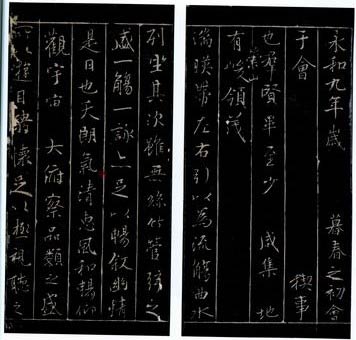 永和九年歲 暮春之初會
于會 稧事
也群賢畢至少 咸集 地
有崇山峻領茂
湍暎帶左右引以為流觴曲水
列坐其次雖無絲竹管弦之
盛一觴一詠亦足以暢叙幽情
是日也天朗氣清惠風和暢仰
觀宇宙 大俯察品類之盛
所以遊目騁懷足以極視聽之